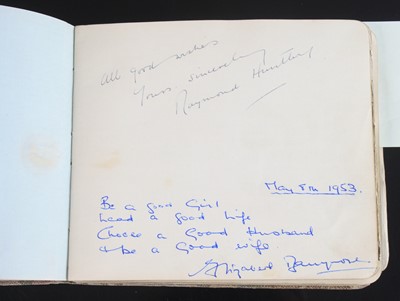 All good wishes
Yours sincerely
Raymond Huntley
May 8th 1953.
Be a good Girl
Lead a good Life
Choose a Good Husband
& be a Good wife
Elizabeth